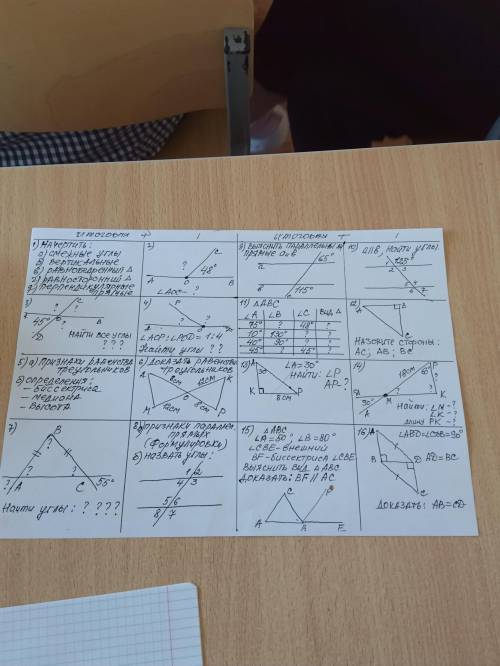 итоговая + 1
1) Начертить:
а) смежные углы
б) вертикальные
в) равнобедренный Δ
г) равносторонний Δ
д) перпендикулярные прямые
2)
C
? 48°
A O B
∠AOC - ?
3)
? ?
45° O ?
Найти все углы
? ? ?
4)
P
? ?
∠AOP : ∠POD = 1:4
Найти углы ? ?
5) а) Признаки равенства треугольников
б) определения:
– биссектриса
– медиана
– высота
6) Доказать равенство треугольников
A K
8см
M O P
7)
B
?
? ?
A C 55°
Найти углы: ? ? ? ?
8) а) признаки паралл. прямых
(формулировки)
б) назвать углы:
1 2
4 3
5 6
8 7
итоговая + 1
9) Выяснить параллельны ли прямые a и b
65°
a
b
115°
c
10) a∥b, найти углы.
125°
2 3
11) ΔABC
∠A ∠B ∠C вид Δ
75° ? 48° ?
10° 130° ? ?
40° 90° ? ?
45° ? 45° ?
12)
A
C
Назовите стороны:
AC; AB; BC
13)
A
30°
∠A=30°
Найти: ∠P
AP - ?
K P
8см
14)
18см
30° M
A K
Найти: ∠N - ?
∠K - ?
длину PK - ?
15) ΔABC
∠A=50°, ∠B=80°
∠CBE - внешний
BF - биссектриса ∠CBE
Выяснить вид ΔABC
Доказать: BF ∥ AC
C F
A B E
16)
A
∠ABD=∠CDB=90°
B D
AD=BC
C
Доказать: AB=CD